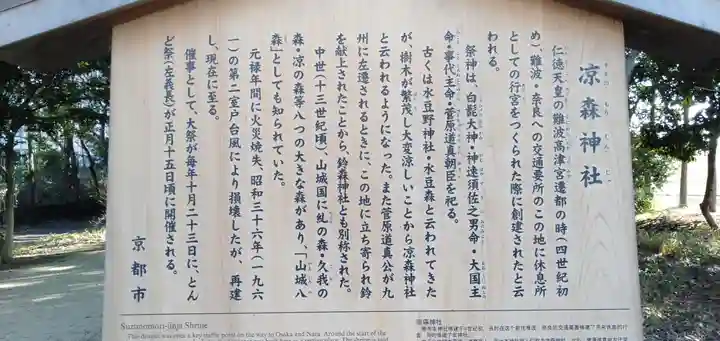 涼森神社
仁徳天皇の難波高津宮遷都の時(四世紀初
め)、難波・奈良への交通要所のこの地に休息所
としての行宮をつくられた際に創建されたと云
われる。
祭神は、白髭大神・神速須佐之男命・大国主
命・事代主命・菅原道真朝臣を祀る。
古くは水豆野神社・水豆森と云われてきた
が、樹木が繁茂し大変涼しいことから涼森神社
と云われるようになった。また菅原道真公が九
州に左遷されるときに、この地に立ち寄られ鈴
を献上されたことから、鈴森神社とも別称された。
中世(十三世紀頃)、山城国に糺の森・久我の
森・涼の森等八つの大きな森があり、「山城八
森」としても知られていた。
元禄年間に火災焼失、昭和三十六年(一九六
一)の第二室戸台風により損壊したが、再建
し、現在に至る。
催事として、大祭が毎年十月二十三日に、とん
ど祭(左義長)が正月十五日頃に開催される。
京都市
Suzunomori-jinja Shrine
This shrine was once a key traffic point on the way to Osaka and Nara. Around the start of the